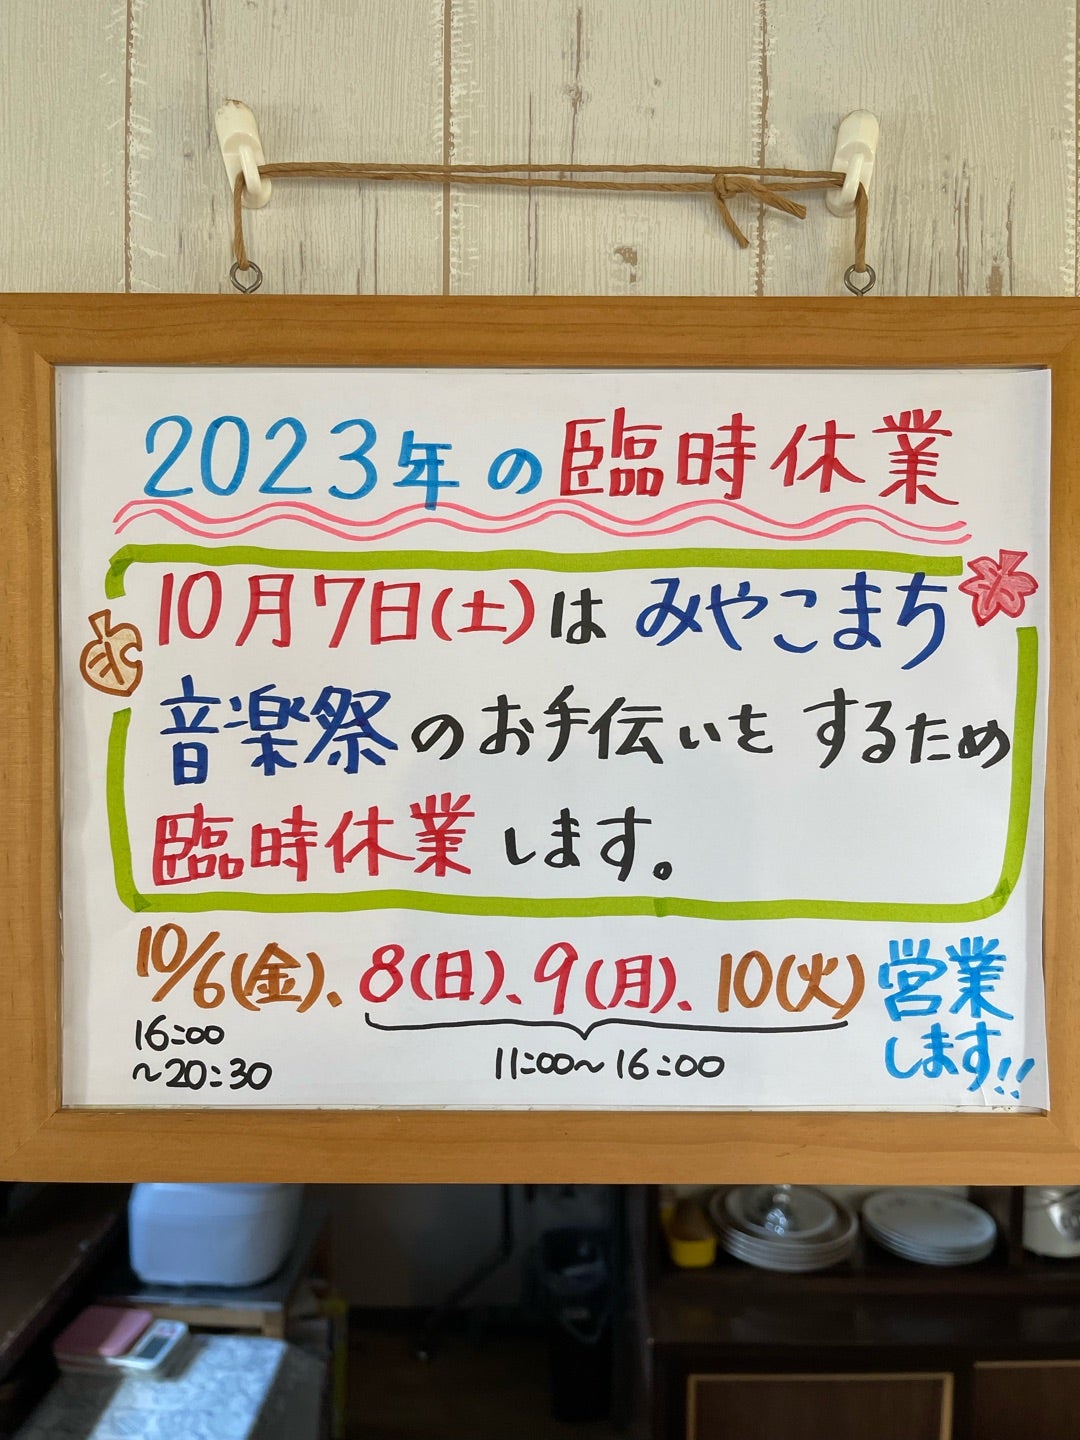 2023年の臨時休業
10月7日(土)はみやこまち
音楽祭のお手伝いをするため
臨時休業します。
10/6(金)、8(日)、9(月)、10(火)営業
します!!
16:00
~20:30
11:00~16:00